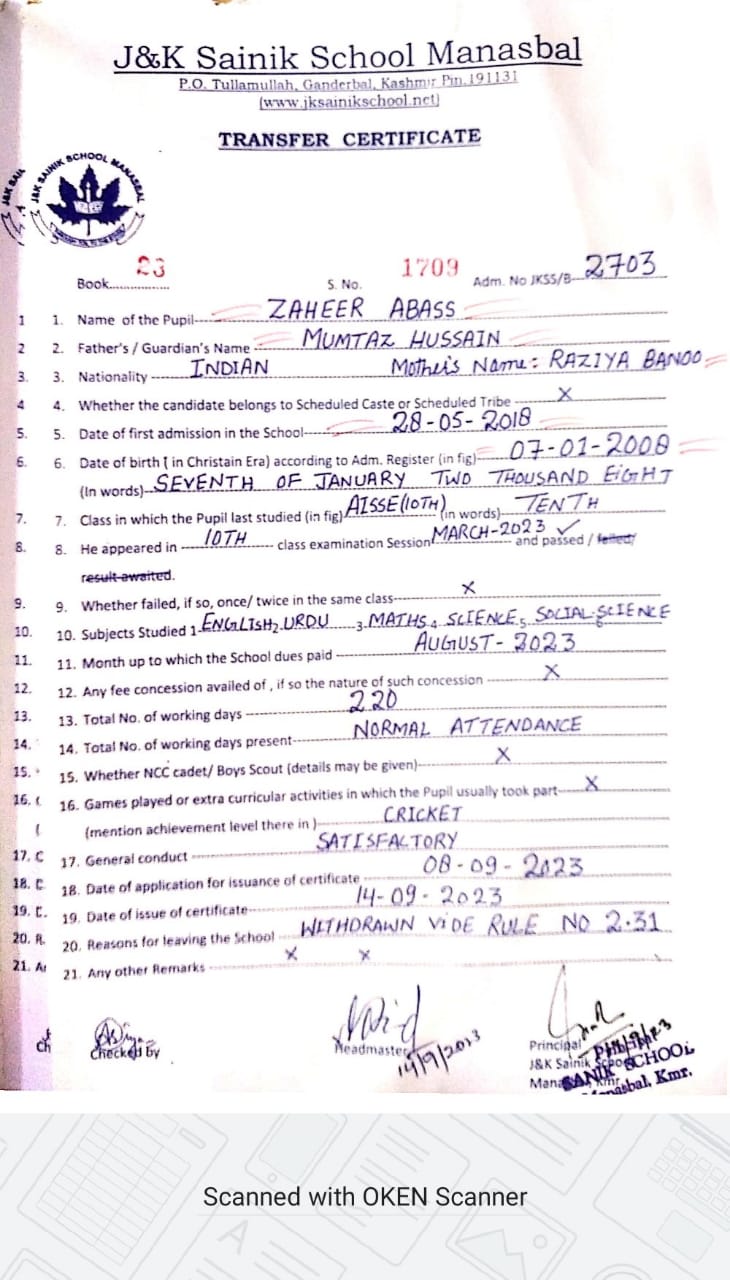 J&K Sainik School Manasbal
P.O. Tullamullah, Ganderbal, Kashmir Pin.191131
(www.jksainikschool.net)
TRANSFER CERTIFICATE
J&K SAINIK SCHOOL MANASBAL
Book 23 S. No. 1709 Adm. No JKSS/B- 2703
1 1. Name of the Pupil ZAHEER ABASS
2 2. Father's / Guardian's Name MUMTAZ HUSSAIN
3. 3. Nationality INDIAN Mother's Name: RAZIYA BANOO
4 4. Whether the candidate belongs to Scheduled Caste or Scheduled Tribe X
5. 5. Date of first admission in the School 28-05-2018
6. 6. Date of birth ( in Christain Era) according to Adm. Register (in fig) 07-01-2008
(In words) SEVENTH OF JANUARY TWO THOUSAND EIGHT
7. 7. Class in which the Pupil last studied (in fig) AISSE(10TH) (in words) TENTH
8. 8. He appeared in 10TH class examination Session MARCH-2023 ✓ and passed / failed/
result awaited.
9. 9. Whether failed, if so, once/ twice in the same class X
10. 10. Subjects Studied 1 ENGLISH 2 URDU 3 MATHS 4 SCIENCE 5 SOCIAL SCIENCE
11. 11. Month up to which the School dues paid AUGUST-2023
12. 12. Any fee concession availed of , if so the nature of such concession X
13. 13. Total No. of working days 220
14. 14. Total No. of working days present NORMAL ATTENDANCE
15. 15. Whether NCC cadet/ Boys Scout (details may be given) X
16. ( 16. Games played or extra curricular activities in which the Pupil usually took part X
( (mention achievement level there in ) CRICKET
17. C 17. General conduct SATISFACTORY
18. 18. Date of application for issuance of certificate 08-09-2023
19. 19. Date of issue of certificate 14-09-2023
20. R. 20. Reasons for leaving the School WITHDRAWN VIDE RULE NO 2.31
21. Ar 21. Any other Remarks X X
Ch Checked by Headmaster 14/9/2023 Principal
J&K Sainik School
SANIK SCHOOL
Manasbal, Kmr.
Scanned with OKEN Scanner